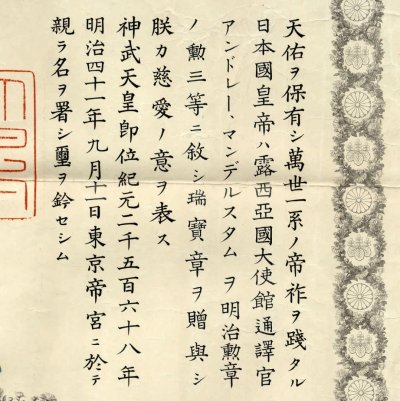 天佑ヲ保有シ萬世一系ノ帝祚ヲ踐タル
日本國皇帝ハ露西亞國大使館通譯官
アンドレー、マンデルスタム ヲ明治勲章
ノ勲三等ニ敍シ瑞寶章ヲ贈與シ
朕カ慈愛ノ意ヲ表ス
神武天皇即位紀元二千五百六十八年
明治四十一年九月十一日東京帝宮ニ於テ
親ラ名ヲ署シ璽ヲ鈐セシム